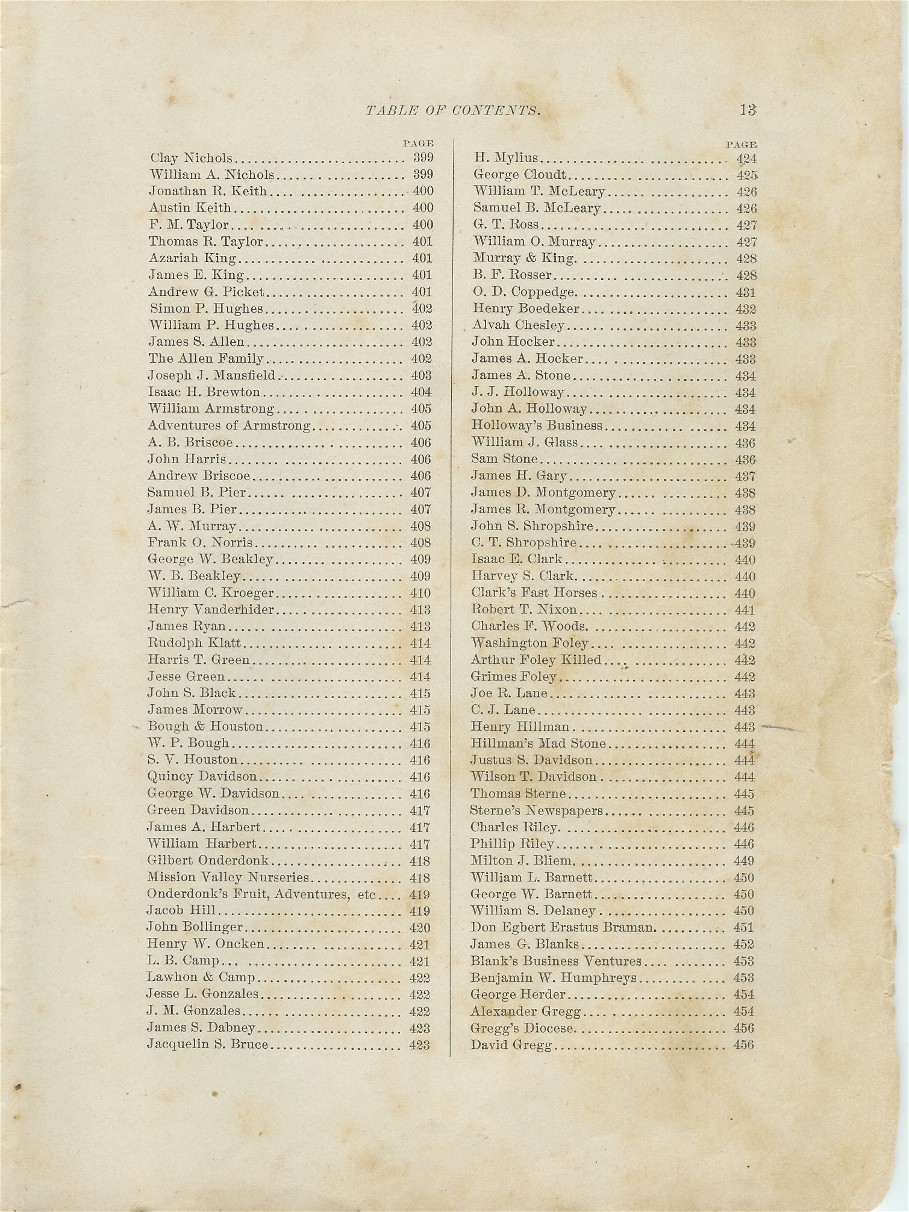 TABLE OF CONTENTS. 13
PAGE
Clay Nichols.......................... 399
William A. Nichols.................... 399
Jonathan R. Keith..................... 400
Austin Keith.......................... 400
F. M. Taylor.......................... 400
Thomas R. Taylor..................... 401
Azariah King......................... 401
James E. King........................ 401
Andrew G. Picket..................... 401
Simon P. Hughes..................... 402
William P. Hughes.................... 402
James S. Allen........................ 402
The Allen Family..................... 402
Joseph J. Mansfield................... 403
Isaac H. Brewton..................... 404
William Armstrong................... 405
Adventures of Armstrong.............. 405
A. B. Briscoe......................... 406
John Harris.......................... 406
Andrew Briscoe....................... 406
Samuel B. Pier....................... 407
James B. Pier......................... 407
A. W. Murray......................... 408
Frank O. Norris....................... 408
George W. Beakley.................... 409
W. B. Beakley........................ 409
William C. Kroeger................... 410
Henry Vanderhider................... 413
James Ryan.......................... 413
Rudolph Klatt........................ 414
Harris T. Green....................... 414
Jesse Green.......................... 414
John S. Black......................... 415
James Morrow........................ 415
Bough & Houston..................... 415
W. P. Bough.......................... 416
S. V. Houston......................... 416
Quincy Davidson...................... 416
George W. Davidson.................. 416
Green Davidson....................... 417
James A. Harbert..................... 417
William Harbert...................... 417
Gilbert Onderdonk.................... 418
Mission Valley Nurseries.............. 418
Onderdonk's Fruit, Adventures, etc.... 419
Jacob Hill............................ 419
John Bollinger........................ 420
Henry W. Oncken..................... 421
L. B. Camp........................... 421
Lawhon & Camp...................... 422
Jesse L. Gonzales...................... 422
J. M. Gonzales........................ 422
James S. Dabney...................... 423
Jacquelin S. Bruce.................... 423
PAGE
H. Mylius............................ 424
George Cloudt........................ 425
William T. McLeary................... 426
Samuel B. McLeary................... 426
G. T. Ross............................ 427
William O. Murray.................... 427
Murray & King....................... 428
B. F. Rosser........................... 428
O. D. Coppedge....................... 431
Henry Boedeker...................... 432
Alvah Chesley........................ 433
John Hocker.......................... 433
James A. Hocker...................... 433
James A. Stone........................ 434
J. J. Holloway......................... 434
John A. Holloway..................... 434
Holloway's Business................... 434
William J. Glass....................... 436
Sam Stone............................ 436
James H. Gary........................ 437
James D. Montgomery................. 438
James R. Montgomery................. 438
John S. Shropshire.................... 439
C. T. Shropshire....................... 439
Isaac E. Clark......................... 440
Harvey S. Clark....................... 440
Clark's Fast Horses................... 440
Robert T. Nixon....................... 441
Charles F. Woods...................... 442
Washington Foley..................... 442
Arthur Foley Killed................... 442
Grimes Foley......................... 442
Joe R. Lane........................... 443
C. J. Lane............................. 443
Henry Hillman........................ 443
Hillman's Mad Stone.................. 444
Justus S. Davidson.................... 444
Wilson T. Davidson................... 444
Thomas Sterne........................ 445
Sterne's Newspapers................... 445
Charles Riley......................... 446
Phillip Riley.......................... 446
Milton J. Bliem....................... 449
William L. Barnett.................... 450
George W. Barnett.................... 450
William S. Delaney................... 450
Don Egbert Erastus Braman........... 451
James G. Blanks...................... 452
Blank's Business Ventures............ 453
Benjamin W. Humphreys............. 453
George Herder........................ 454
Alexander Gregg...................... 454
Gregg's Diocese....................... 456
David Gregg.......................... 456